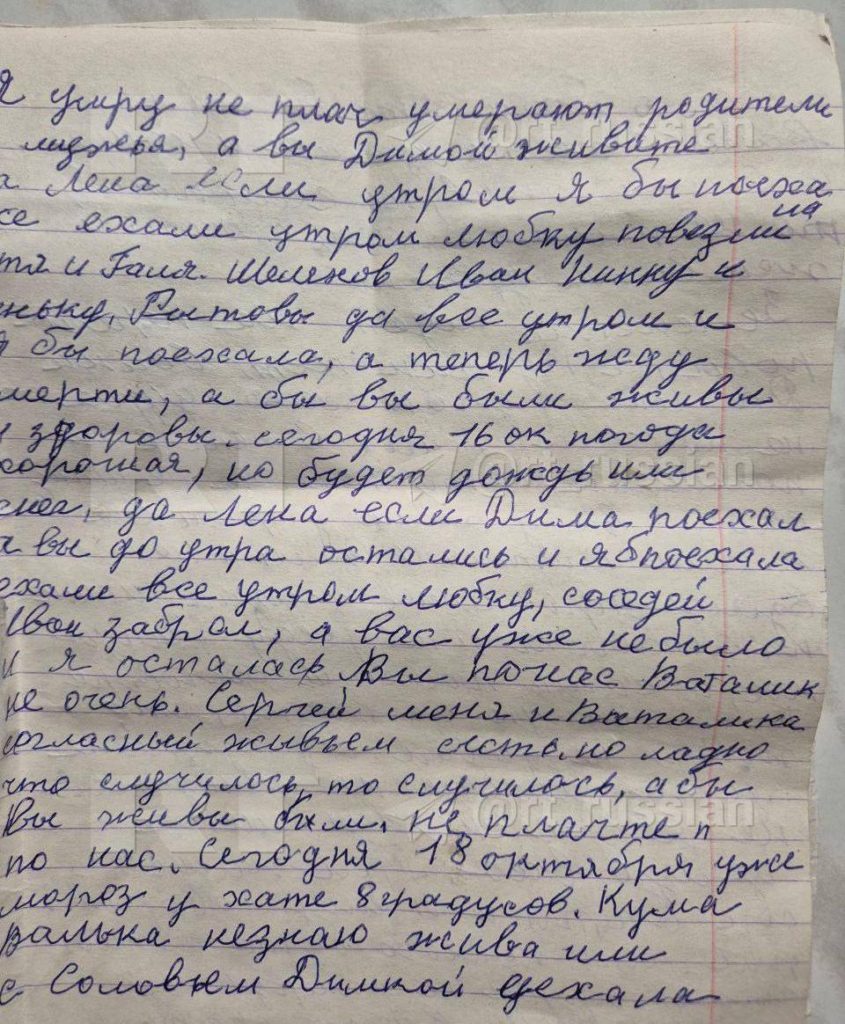 Я умру не плач умерают родители
мужья, а вы Димой живите
а Лена если утром я бы поеха
се ехали утром Любку повезли на
тя и Галя. Шеленов Иван Нинку и
еньку, Ростовы да все утром и
я бы поехала, а теперь жду
мерти, а бы вы были живы
и здоровы. сегодня 16 ок погода
хорошая, но будет дождь или
снег, да Лена если Дима поехал
а вы до утра остались и я б поехала
ехали все утром Любку, соседей
Иван забрал, а вас уже не было
и я осталась Вы по нас Ваталик
не очень. Сергей меня и Ваталика
согласный живьем сьесть, но ладно
что случилось, то случилось, абы
Вы живы были, не плачте п
по нас. Сегодня 18 октября уже
мороз у хате 8 градусов. Кума
Валька незнаю жива или
с Соловьем Димкой уехала
@rt_russian
@rt_russian
@rt_russian